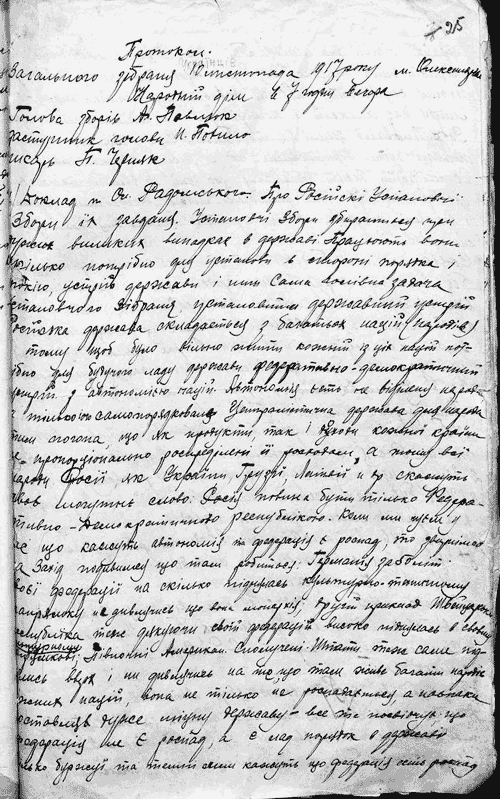 25
Протокол.
українців
Загального зібрання 10 листопада 1917 року м. Олександр
Народній дім в 7 годин вечора
Голова зборів А. Павлюк
заступник голови И. Повило
писарь П. Черняк
Доклад т. Радомського. Про Російскі Установчі
Збори їх завдання. Установчі Збори збираються при
дуже великих випадках в державі. Працюють вони
скілько потрібно для установи в стороні порядка і
устрію держави і инш. Сама головна задача
Установчого Зібрання установити державний устрій
Російска держава складається з багатьох націй (народів)
тому щоб було вільно жити кожній із цих націй пот-
рібно для будучого ладу держави федеративно-демократичний
устрій з автономією націй. Автономія єсть не відділення народ-
а тількою самопорядкування. Централістична держава для народа
тим погана, що як продукти, так і кожної країни
не пропорціонально росприділені її , а тому всі
народи Росії як України, Грузії, Латвії и др скажуть
своє могутнє слово. Росія повинна бути тілько Федера-
тивно-Демократичною республікою. Коли ми чуєм у
нас що кажуть автономія та федерація є роспад, то звернімся
на Захід подивимся що там робиться. Германія завдяки
своєї федерації на скілько піднялась культурно-технічному
напрямку не дивлячись що вона монархія, другий приклад Швейцарська
республіка теж дякуючи своїй федерації високо піднялась в своєму
Північні Американ. Сполучені Штати теж саме під-
нялись вверх і ни дивлячись на те, що там живе багато народів
ріжних і націй, вона не тілько не роспадається, а навпаки
доставляє дуже міцну державу — все те посвідчує що
федерація не є роспад, а є лад порядок в державі
тілько буржуї та темні люди кажуть що федерація єсть роспад